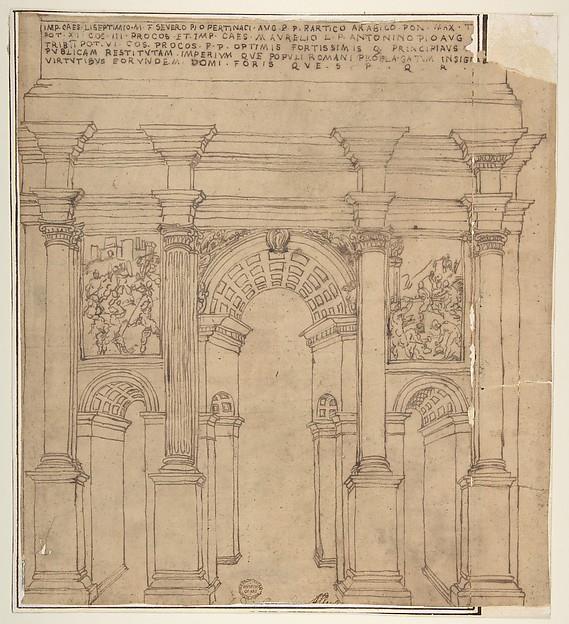 IMP. CAES. L. SEPTIMIO. M. F. SEVERO PIO PERTINACI. AVG. P. P. PARTICO ARABICO. PON. MAX. T
POT. XI. COS. III. PROCOS. ET. IMP. CAES. M. AVRELIO L. F. ANTONINO PIO AVG
TRIB POT. VI. COS. PROCOS. P. P. OPTIMIS FORTISSIMIS Q. PRINCIPIAVS
PVBLICAM RESTITVTAM. IMPERIVM QVE POPVLI ROMANI PROPLAGATVM INSIG
VIRTVTIBVS EORVNDEM. DOMI. FORIS QVE. S. P. Q. R